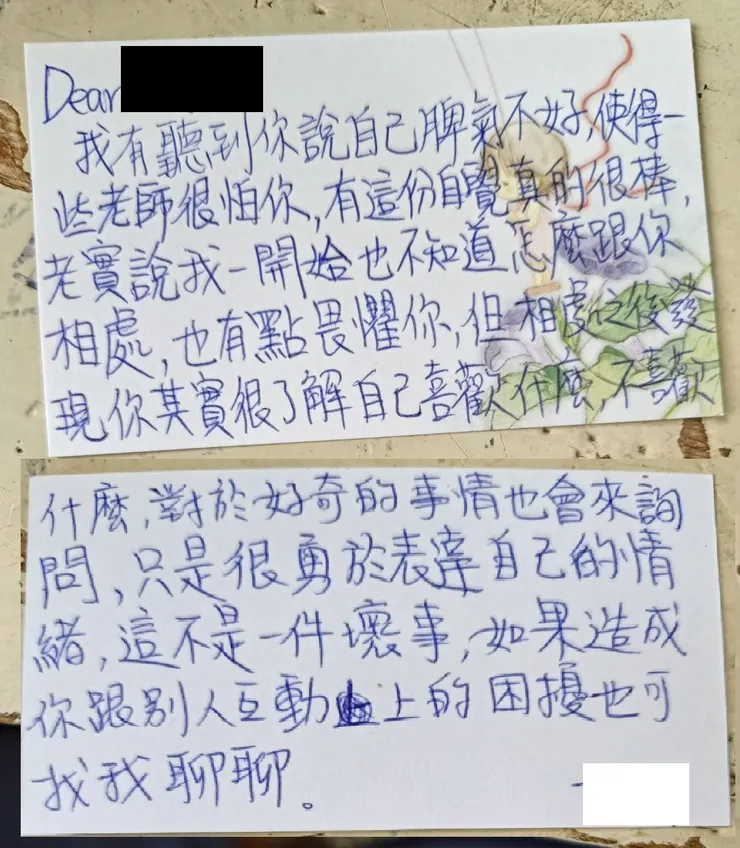 Dear
我有聽到你說自己脾氣不好,使得一
些老師很怕你,有這份自覺真的很棒,
老實說我一開始也不知道怎麼跟你
相處,也有點畏懼你,但相處之後發
現你其實很了解自己喜歡什麼,不喜歡
什麼,對於好奇的事情也會來詢
問,只是很勇於表達自己的情
緒,這不是一件壞事,如果造成
你跟別人互動上的困擾也可
找我聊聊。